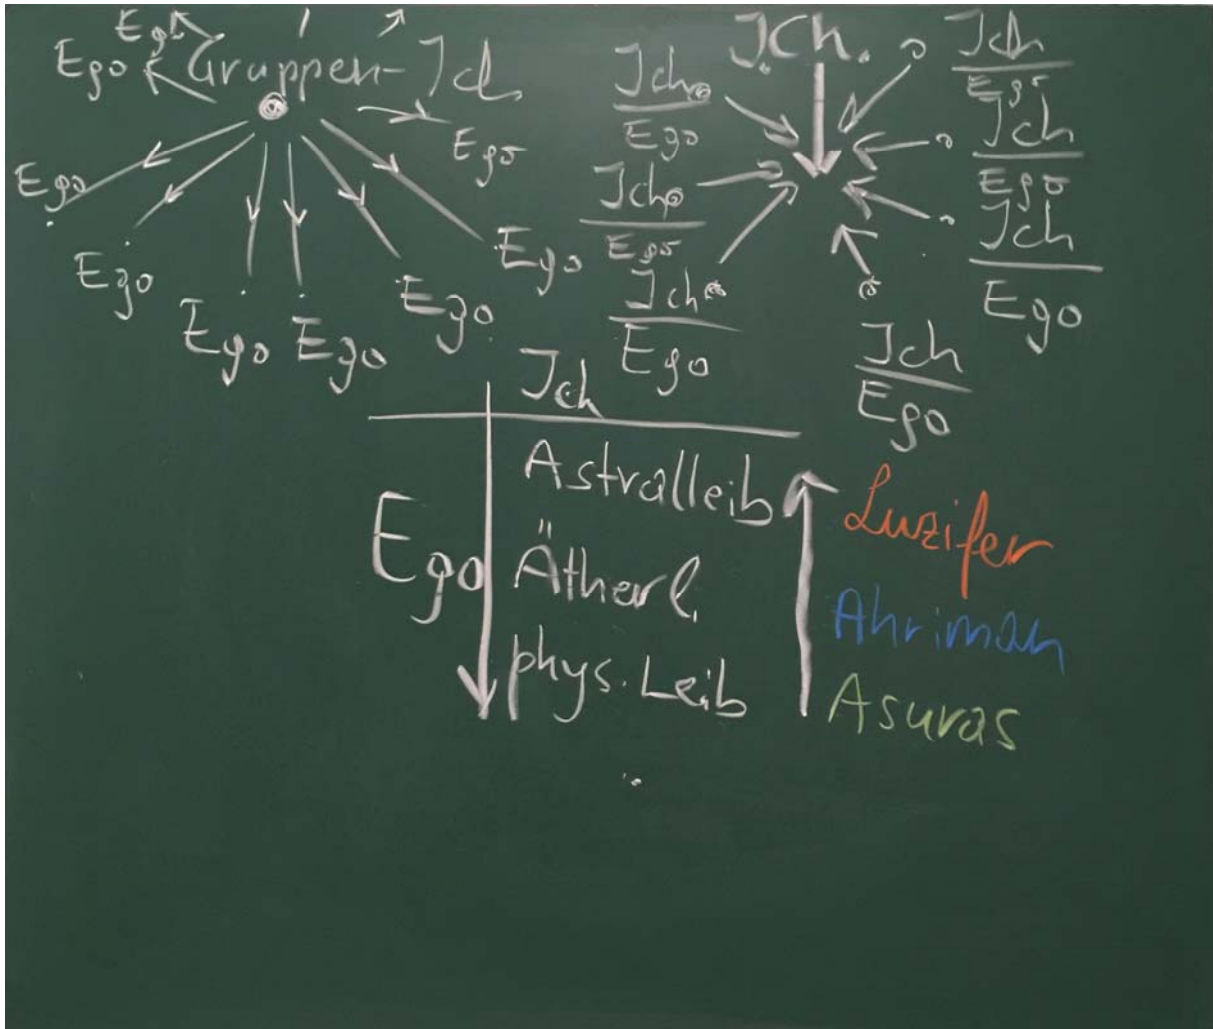 Ego
Ego
Gruppen-Ich
Ego
Ego
Ego
Ego
Ego
Ego
Ego
J.Ch.
Ich
Ego
Ich
Ego
Ich
Ego
Ich
Ego
Ich
Ego
Ich
Ego
Ich
Ego
Ich
Ego
Astralleib
Ätherl.
phys. Leib
Luzifer
Ahriman
Asuras